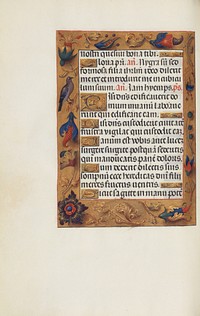 nostri quoniam bona tibi.
loria pri. añ. Nigra sũ sed
formosa filia iherl̃m ideo dilexit
me rex et introduxit me in cubicu
lum suum. añ. Jam hyemps. ps.
Nisi dñs edificauerit do
mum in uanũ labora
qui edificant eam.
Nisi dñs custodierit
frustra vigilat qui custodit
anum est vobis ante luce
surgere surgite postq̃ sederitis
qui manducatis pane doloris.
um dederit dilectis suis
sompnũ ecce hereditas dñi filii
merces fructus ventris.
icut sagitte in manu pote